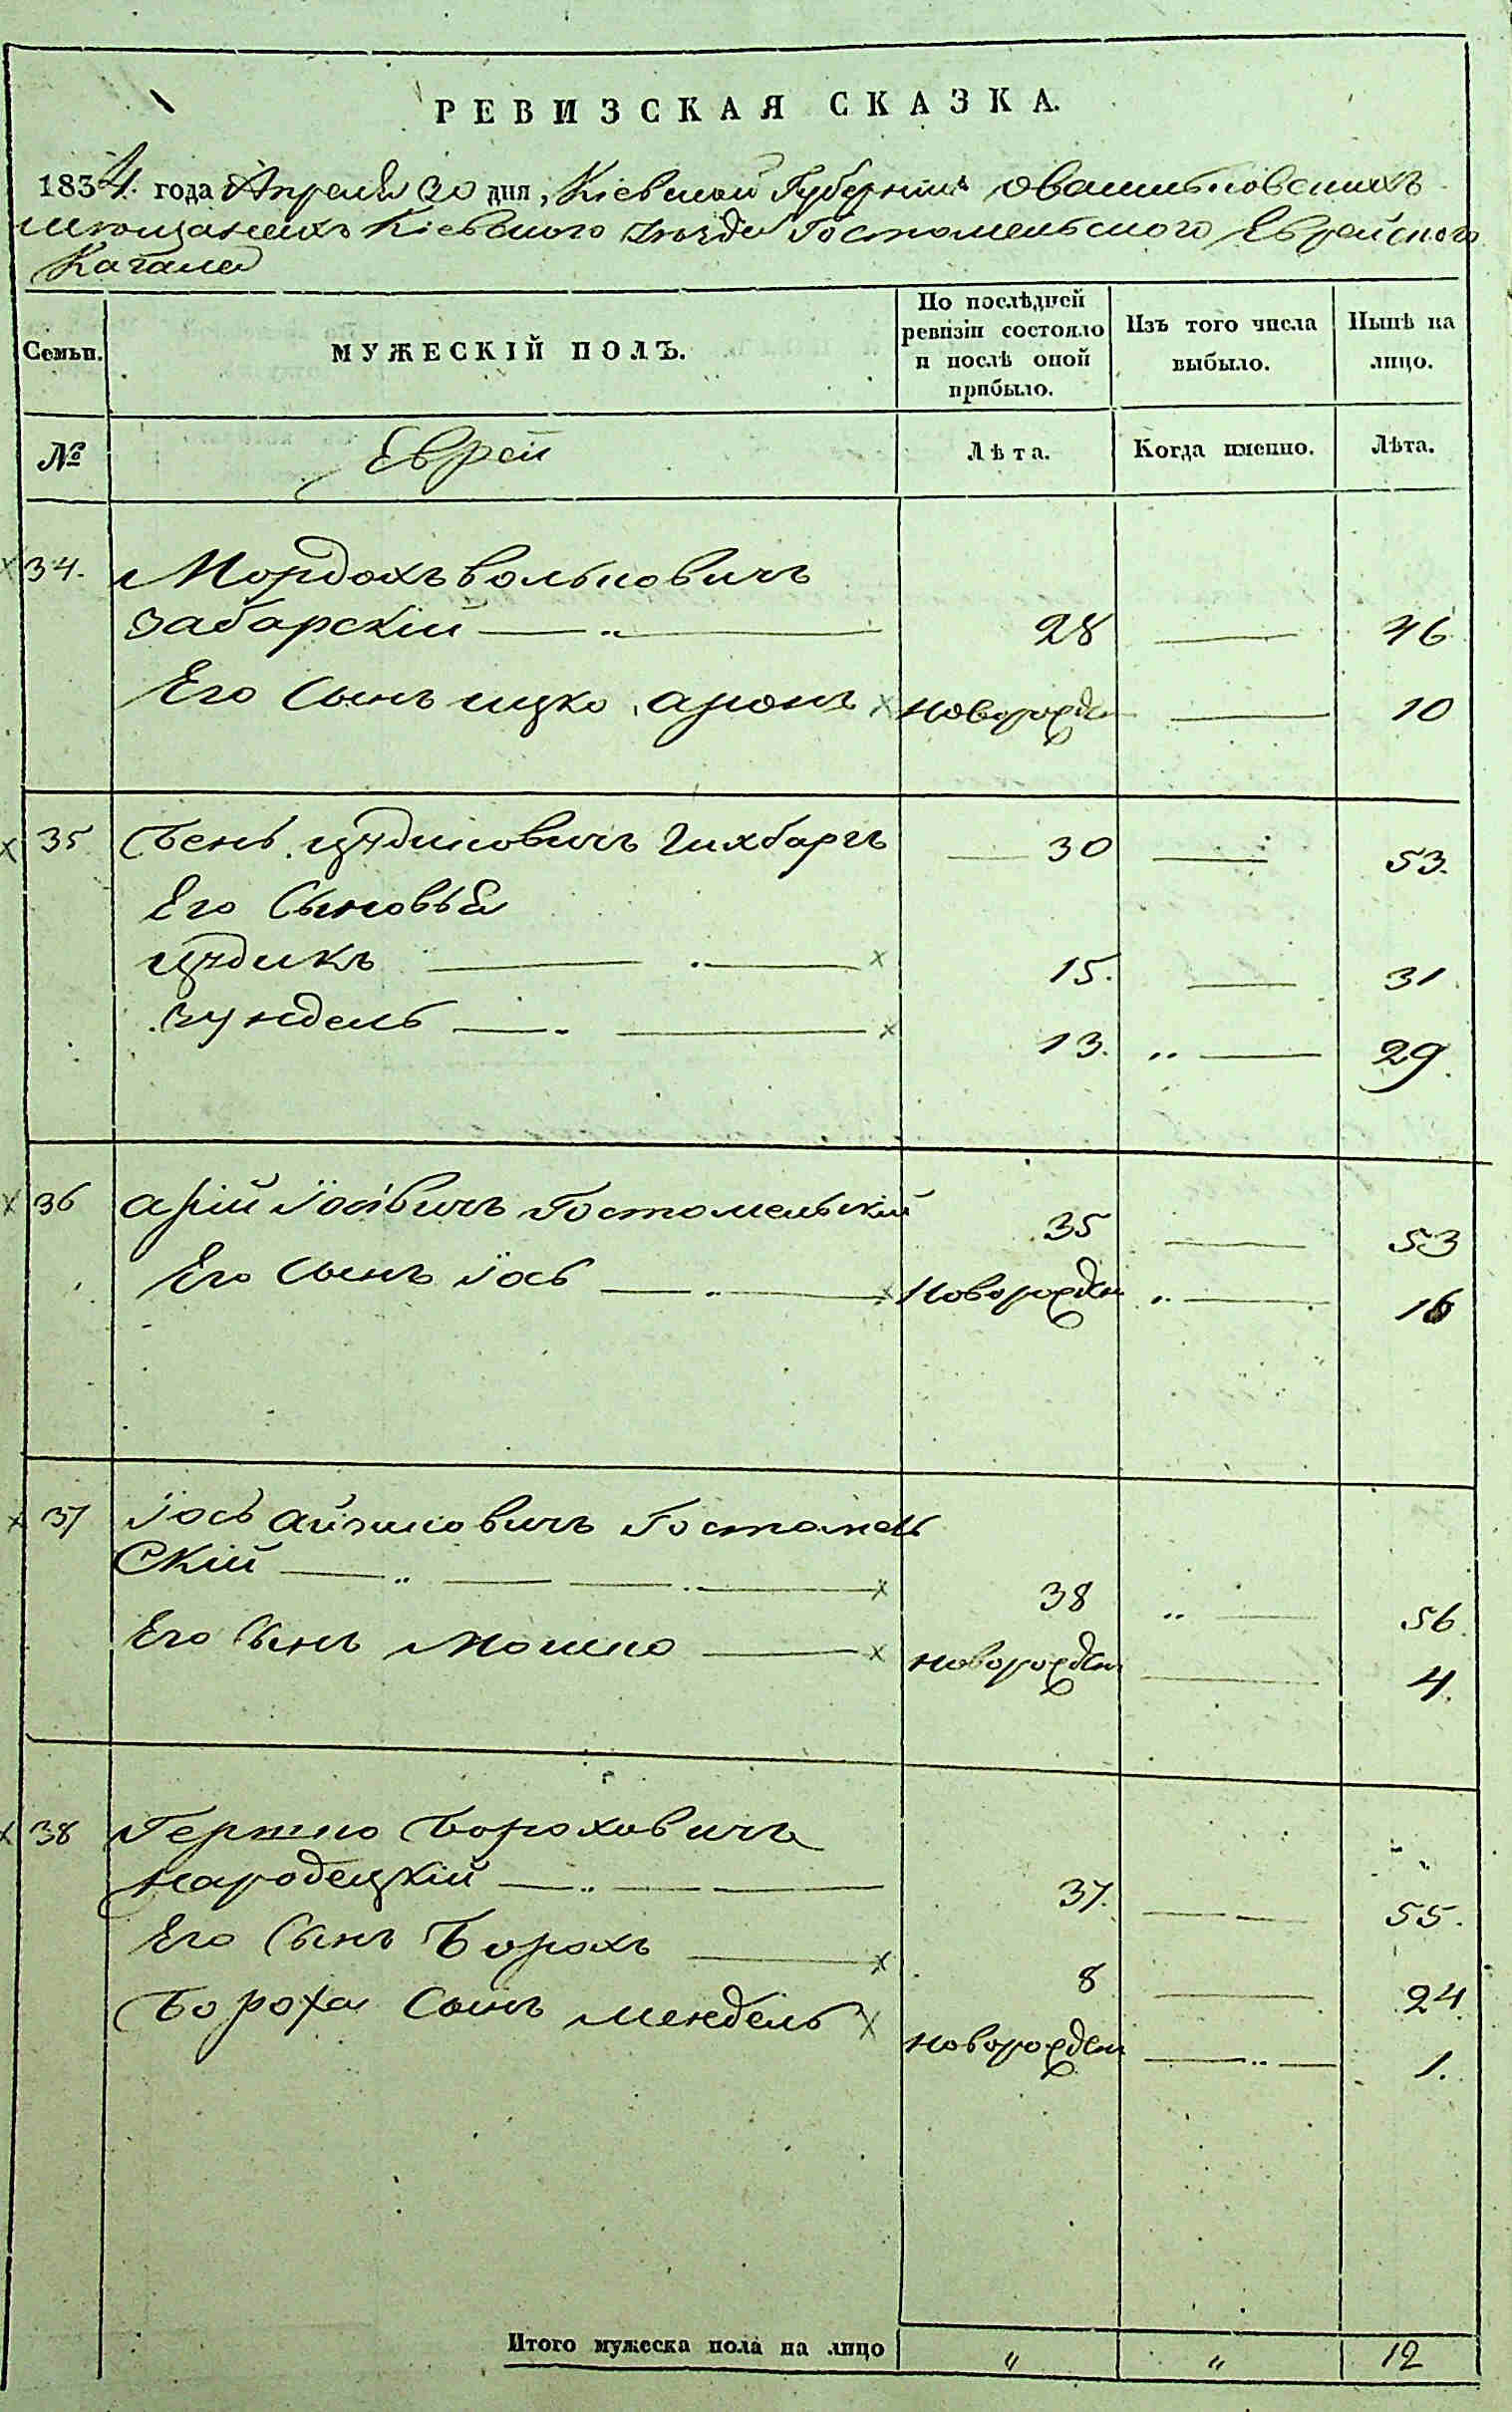 РЕВИЗСКАЯ СКАЗКА.
1834. года Апреля 30 дня, Кіевской Губерніи о Васильковскихъ
мещанехъ Кіевского уезда Гостомельского Еврейского
Кагала
Семьи.
МУЖЕСКІЙ ПОЛЪ.
По послѣдней ревизіи состояло и послѣ оной прибыло.
Изъ того числа выбыло.
Нынѣ на лицо.
№
Евреи
Лѣта.
Когда именно.
Лѣта.
34. Мордохъ Вольковичъ
Забарскій 28 46
Его Сынъ Ицко Аронъ новорожден 10
35 Бень Цудиковичъ 30 53.
Его Сыновья
Цудикъ 15. 31
Зундель 13. 29.
36 Арій Іосевичъ Гостомельскій 35 53
Его Сынъ Іось Новорожден 16
37 Іось Айзиковичъ Гостомель
Скій 38 56
Его Сынъ Мошко новорожден 4.
38 Гершко Бороховичъ
Народецкій 37. 55.
Его Сынъ Борохъ 8 24
Бороха Сынъ Мендель новорожден 1.
Итого мужеска пола на лицо " " 12